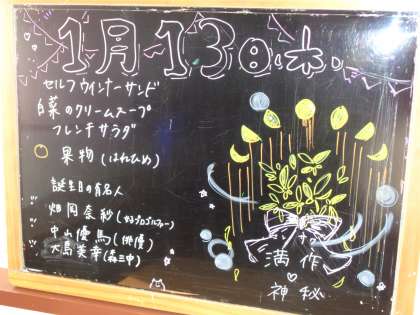 1月13日(水)
セルフウィンナーサンド
白菜のクリームスープ
フレンチサラダ
果物(はれひめ)
誕生日の有名人
畑岡奈紗(女子プロゴルファー)
中山優馬(俳優)
大島美幸(森三中)
満作
神秘